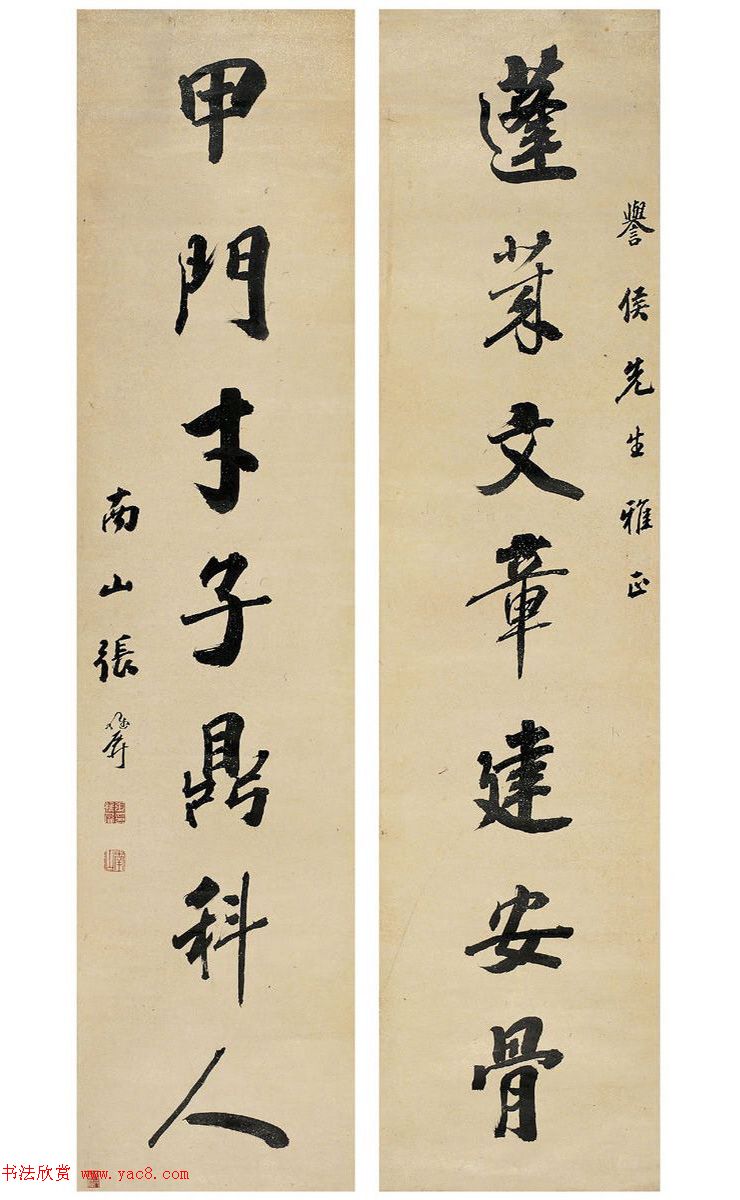 譽侯先生雅正
蓬萊文章建安骨
甲門才子鼎科人
南山張維屏
书法欣赏 www.yac8.com